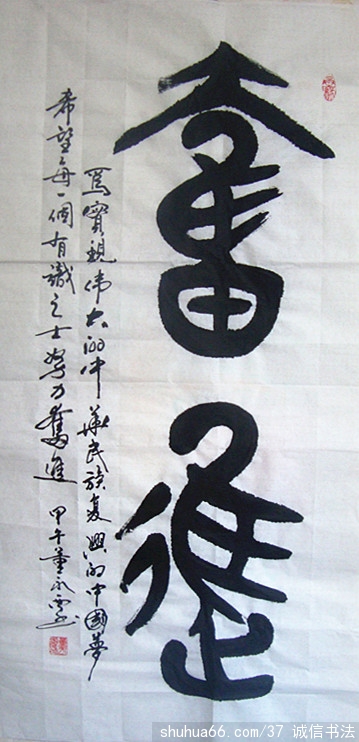 奮進
為實現偉大的中華民族复興的中國夢
希望每一個有識之士努力奮進 甲午董永雲书
shuhua66.com/37 诚信书法